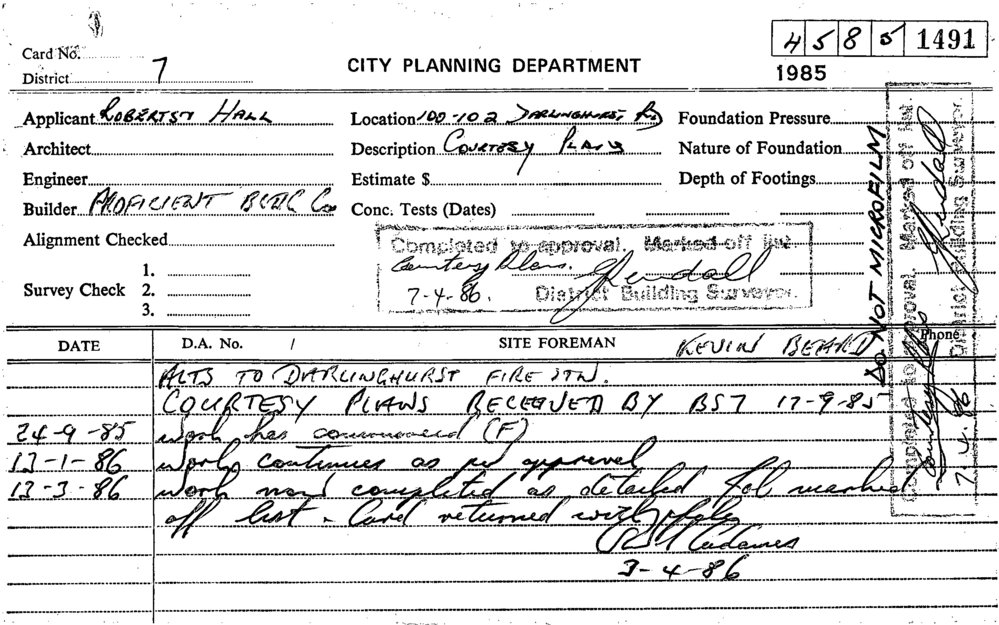 4 5 8 5 1491
1985
Card No.
District 7
CITY PLANNING DEPARTMENT
Applicant ROBERTSN HALL Location 100-102 DARLINGHURST RD Foundation Pressure
Architect Description COURTESY PLANS Nature of Foundation
Engineer Estimate $ Depth of Footings
Builder PROFICIENT BLDG Co Conc. Tests (Dates)
Alignment Checked
Completed to approval. Marked off list
Courtesy Plans. Kendall
7-4-86. District Building Surveyor.
Survey Check 1.
2.
3.
DO NOT MICROFILM
Completed to approval. Marked off list
Courtesy Plans Kendall
7.4.86 District Building Surveyor.
DATE D.A. No. / SITE FOREMAN KEVIN BEARD Phone
ALTS TO DARLINGHURST FIRE STN.
COURTESY PLANS RECEIVED BY BS7 17-9-85
24-9-85 work has commenced (F)
13-1-86 work continues as per approval
13-3-86 work now completed as detailed Job marked
off list. Card returned with
3-4-86